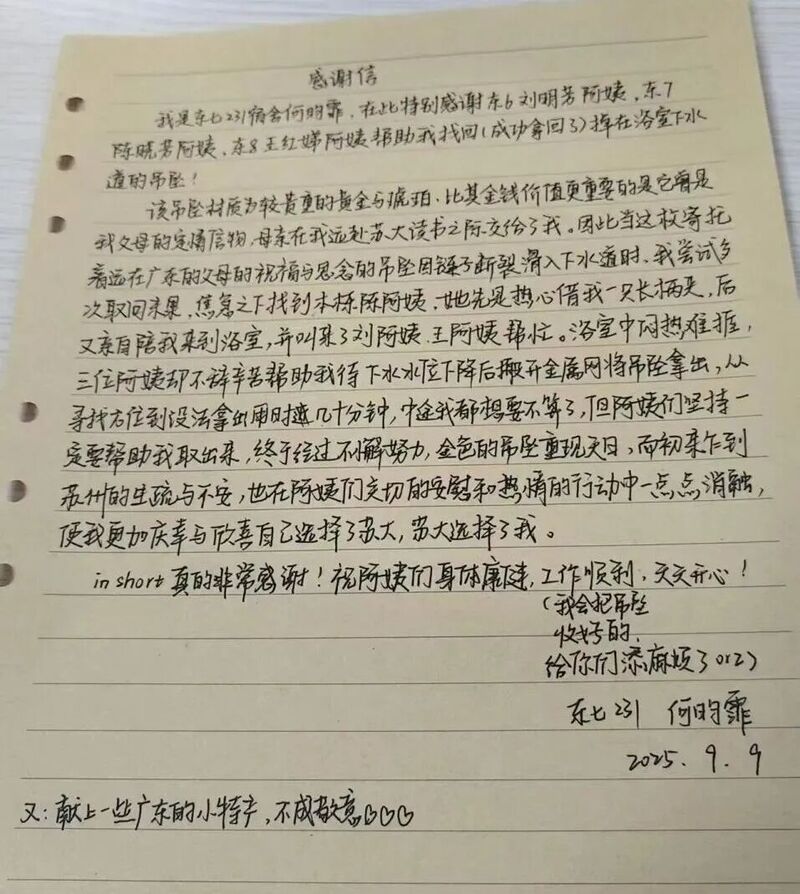 感谢信
我是东七231宿舍何昀霏，在此特别感谢东6刘明芳阿姨、东7
陈晓芳阿姨、东8王红娣阿姨帮助我找回(成功拿回了)掉在浴室下水
道的吊坠！
该吊坠材质为较贵重的黄金与琥珀，比其金钱价值更重要的是它曾是
我父母的定情信物，母亲在我远赴苏大读书之际交给了我。因此当这枚寄托
着远在广东的父母的祝福与思念的吊坠因链子断裂滑入下水道时，我尝试多
次取回未果，焦急之下找到本栋陈阿姨，她先是热心借我一只长柄夹，后
又亲自陪我来到浴室，并叫来了刘阿姨、王阿姨帮忙。浴室中闷热难捱，
三位阿姨却不辞辛苦帮助我待下水水位下降后搬开金属网将吊坠拿出，从
寻找方位到设法拿出用时逾几十分钟，中途我都想要不算了，但阿姨们坚持一
定要帮助我取出来，终于经过不懈努力，金色的吊坠重现天日，而初来乍到
苏州的生疏与不安，也在阿姨们交切的安慰和热情的行动中一点点消融，
使我更加庆幸与欣喜自己选择了苏大，苏大选择了我。
in short 真的非常感谢！祝阿姨们身体康健，工作顺利，天天开心！
(我会把吊坠
收好的，
给你们添麻烦了orz)
东七231 何昀霏
2025.9.9
又：献上一些广东的小特产，不成敬意♡♡♡